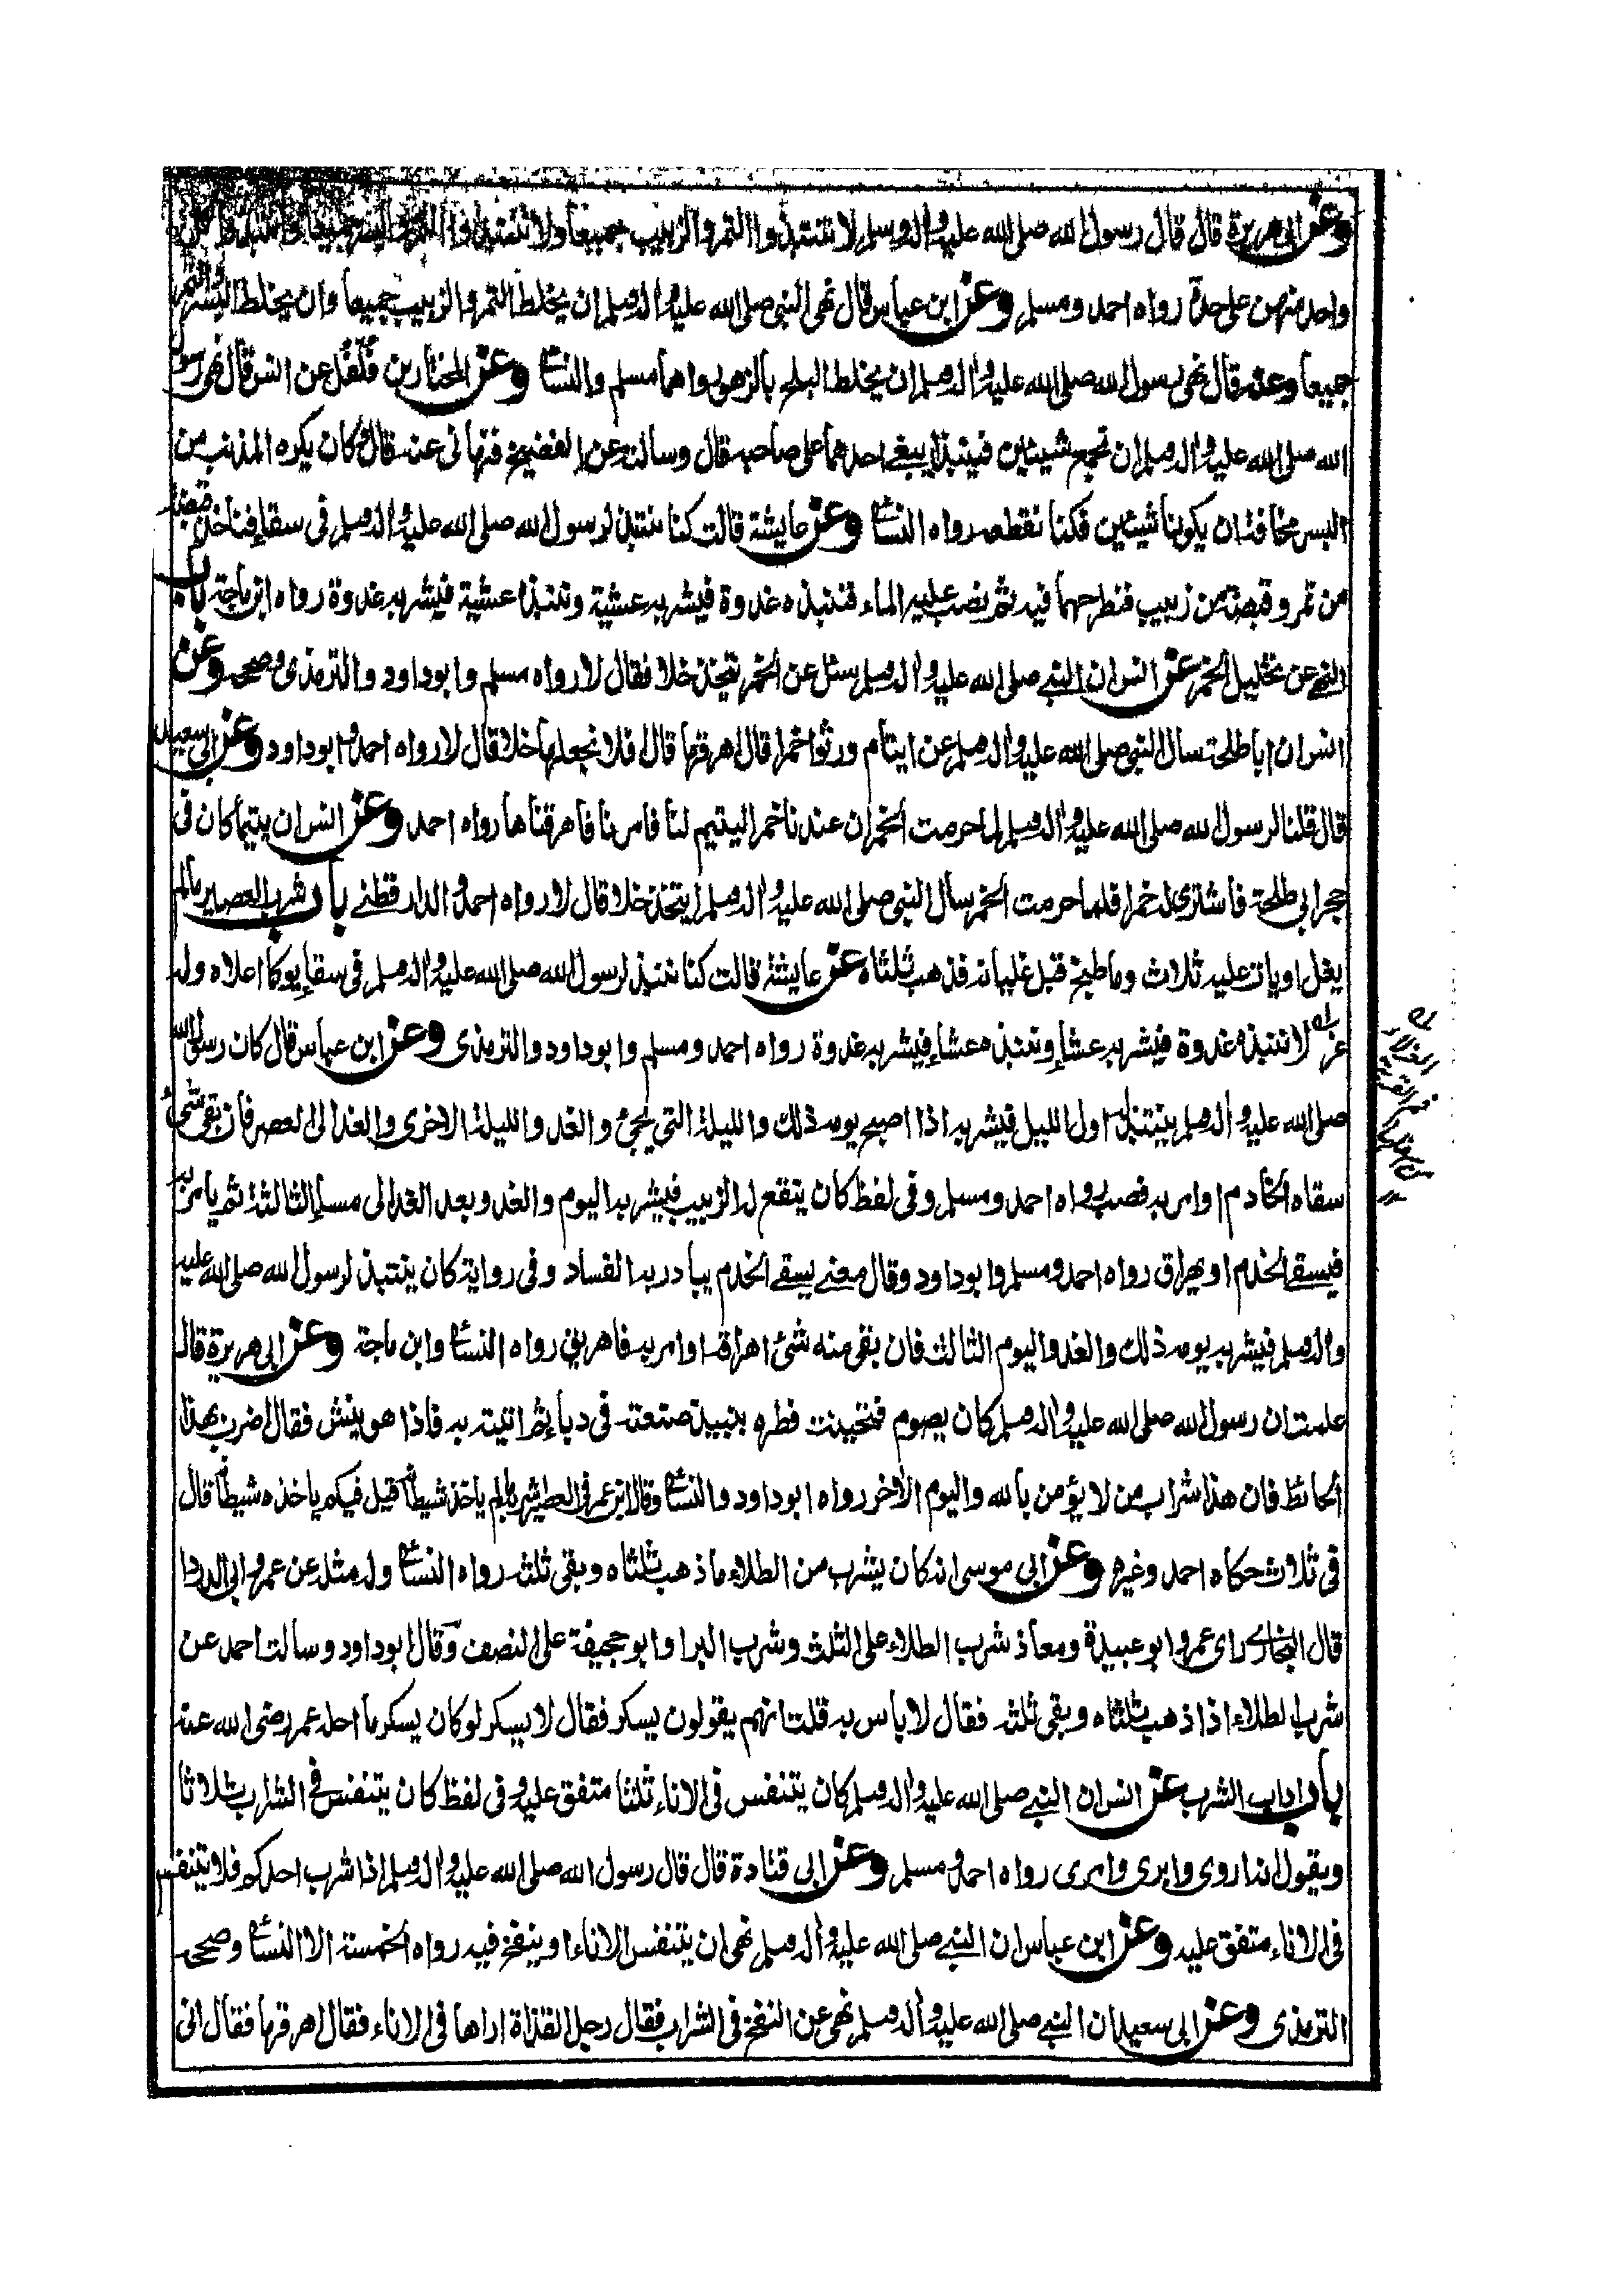 وعن ابى هريرة قال قال رسول الله صلى الله عليه وآله وسلم لا تنتبذوا التمر والزبيب جميعا ولا تنتبذوا التمر والبسر جميعا وانتبذوا كل
واحد منهن على حدة رواه احمد ومسلم وعن ابن عباس قال نهى النبى صلى الله عليه وآله وسلم ان يخلط التمر والزبيب جميعا وان يخلط البسر والتمر
جميعا وعنه قال نهى رسول الله صلى الله عليه وآله وسلم ان يخلط البلح بالزهو رواهما مسلم والنسائى وعن المختار بن فلفل عن انس قال نهى رسول
الله صلى الله عليه وآله وسلم ان نجمع شيئين فينبذا يبغى احدهما على صاحبه قال وسالته عن الفضيخ فنهانى عنه قال كان يكره المذنب من
البسر مخافة ان يكونا شيئين فكنا نقطعه رواه النسائى وعن عايشة قالت كنا ننتبذ لرسول الله صلى الله عليه وآله وسلم فى سقاء فناخذ قبضة
من تمر وقبضة من زبيب فنطرحهما فيه ثم نصب عليه الماء فننبذه غدوة فيشربه عشية وننبذه عشية فيشربه غدوة رواه ابن ماجة باب
النهى عن تخليل الخمر عن انس ان النبى صلى الله عليه وآله وسلم سئل عن الخمر تتخذ خلا فقال لا رواه مسلم وابوداود والترمذى وصححه وعن
انس ان اباطلحة سال النبى صلى الله عليه وآله وسلم عن ايتام ورثوا خمرا قال اهرقها قال افلا نجعلها خلا قال لا رواه احمد وابوداود وعن ابى سعيد
قال قلنا لرسول الله صلى الله عليه وآله وسلم لما حرمت الخمر ان عندنا خمرا ليتيم لنا فامرنا فاهرقناها رواه احمد وعن انس ان يتيما كان فى
حجر ابى طلحة فاشترى له خمرا فلما حرمت الخمر سال النبى صلى الله عليه وآله وسلم ايتخذ خلا قال لا رواه احمد والدارقطنى باب شرب العصير مالم
يغل او يات عليه ثلاث وما طبخ قبل غليانه فذهب ثلثاه عن عايشة قالت كنا ننتبذ لرسول الله صلى الله عليه وآله وسلم فى سقاء يوكا اعلاه وله
عزلاء ننتبذه غدوة فيشربه عشاء وننتبذه عشاء فيشربه غدوة رواه احمد ومسلم وابوداود والترمذى وعن ابن عباس قال كان رسول الله
صلى الله عليه وآله وسلم ينتبذ له اول الليل فيشربه اذا اصبح يومه ذلك والليلة التى تجئ والغد والليلة الاخرى والغد الى العصر فان بقى شئ
سقاه الخادم او امر به فصب رواه احمد ومسلم وفى لفظ كان ينقع له الزبيب فيشربه اليوم والغد وبعد الغد الى مساء الثالثة ثم يامر به
فيسقى الخدم او يهراق رواه احمد ومسلم وابوداود وقال معنى يسقى الخدم يبادر به الفساد وفى رواية كان ينتبذ لرسول الله صلى الله عليه
وآله وسلم فيشربه يومه ذلك والغد واليوم الثالث فان بقى منه شئ اهراقه او امر به فاهريق رواه النسائى وابن ماجة وعن ابى هريرة قال
علمت ان رسول الله صلى الله عليه وآله وسلم كان يصوم فتحينت فطره بنبيذ صنعته فى دباء ثم اتيته به فاذا هو ينش فقال اضرب بهذا
الحائط فان هذا شراب من لا يؤمن بالله واليوم الاخر رواه ابوداود والنسائى وقال ابن عمر فى العصير اشربه مالم ياخذه شيطانه قيل فيكم ياخذه شيطانه قال
فى ثلاث حكاه احمد وغيره وعن ابى موسى انه كان يشرب من الطلاء ما ذهب ثلثاه وبقى ثلثه رواه النسائى وله مثله عن عمر وابى الدردا
قال البخارى راى عمر وابو عبيدة ومعاذ شرب الطلاء على الثلث وشرب البرا وابو جحيفة على النصف وقال ابوداود وسالت احمد عن
شرب الطلاء اذا ذهب ثلثاه وبقى ثلثه فقال لا باس به قلت انهم يقولون يسكر فقال لا يسكر لو كان يسكر ما احله عمر رضى الله عنه
باب اداب الشرب عن انس ان النبى صلى الله عليه وآله وسلم كان يتنفس فى الاناء ثلثا متفق عليه وفى لفظ كان يتنفس فى الشراب ثلاثا
ويقول انه اروى وابرى وامرى رواه احمد ومسلم وعن ابى قتادة قال قال رسول الله صلى الله عليه وآله وسلم اذا شرب احدكم فلا يتنفس
فى الاناء متفق عليه وعن ابن عباس ان النبى صلى الله عليه وآله وسلم نهى ان يتنفس الاناء او ينفخ فيه رواه الخمسة الا النسائى وصححه
الترمذى وعن ابى سعيد ان النبى صلى الله عليه وآله وسلم نهى عن النفخ فى الشراب فقال رجل القذاة اراها فى الاناء فقال اهرقها فقال انى